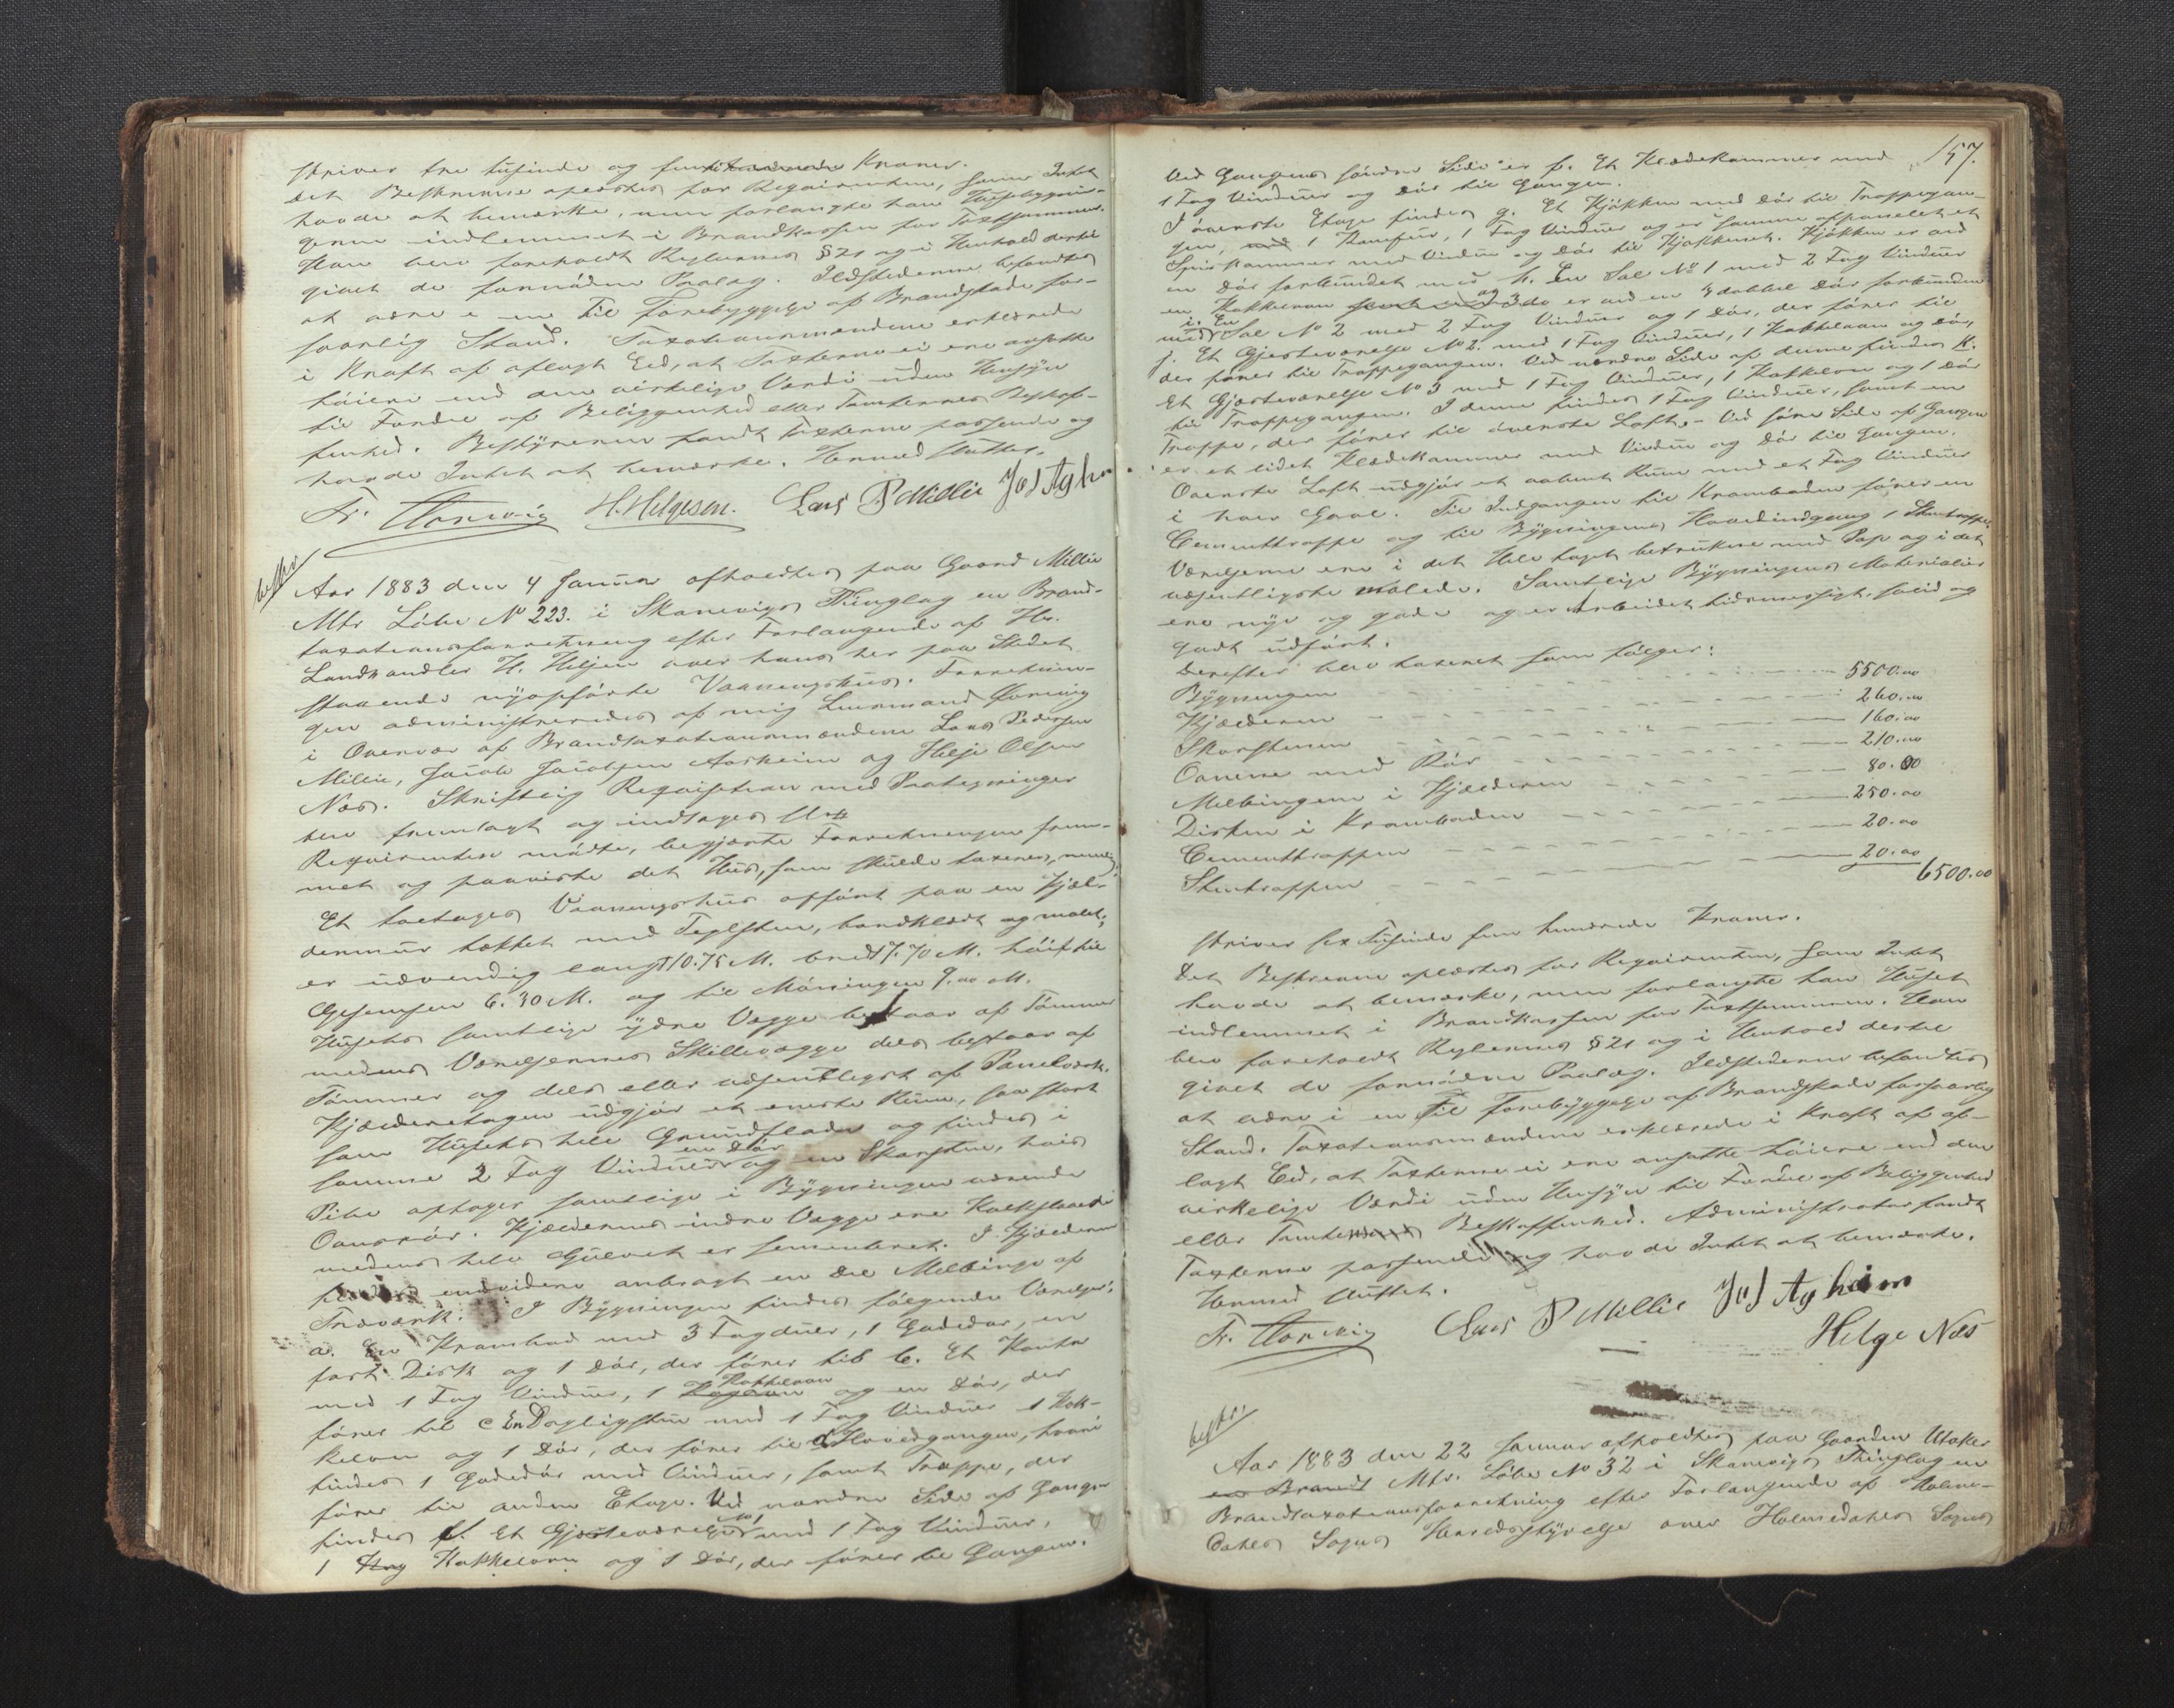 skriver tre tusinde og fem hundrede Kroner.
Det Beskrevne oplæstes for Reqvirenten, som Intet
havde at bemærke, men forlangte han Husebygnin-
gerne indlemmet i Brandkassen for Taxtsummen.
Han blev foreholdt Reglernes § 21 og i Henhold dertil
givet de fornødne Paalæg. Ildstederne befandtes
at være i en til Forebyggelse af Brandskade for-
svarlig Stand. Taxationsmændene erklærede
i Kraft af aflagt Eed, at Taxterne ei ere ansatte
høiere end den virkelige Værdi uden Hensyn
til Fordee af Beliggenhed eller Tomternes Beskaf-
fenhed. Bestyreren fandt Taxterne passende og
havde Intet at bemærke. Hermed sluttet.
Fr. H. Helgesen. Lars P Millie
Aar 1883 den 4 Januar afholdtes paa Gaard Millie
Mtr. Løbe No 223. i Skonevigs Thinglag en Brand-
taxationsforretning efter Forlangende af Hr.
Landhandler H. Heljesen over hans her paa Stedet
staaende nyopførte Vaaningshus. Forretnin-
gen administreredes af mig Lensmand
i Overvær af Brandtaxationsmændene Lars Pedersen
Milie, Jacob Jacobsen Aarheim og Helje Olsen
Næs. Skriftlig Reqvisition med Paategninger
blev fremlagt og indtages
Reqvirenten mødte, begjærte Forretningen frem-
met og paaviste det Hus, som skulde taxeres, nemlig
Et toetages Vaaningshus opført paa en Kjæl-
dermur tækket med Teglsten, bordklædt og malet,
er udvendig langt 10.75 M. bredt 7.70 M. høit til
Gesemsen 6.30 M. og til Mønningen 9.00 M.
Husets samtlige ydre Vægge bestaar af Tømmer
medens Værelsernes Skillevægge dels bestaar af
Tømmer og dels eller væsentligst af Panelværk.
Kjælderetagen udgjør et eneste Rum, saa stort
som Husets hele Grundflade og findes i
samme 2 Fag Vinduer en Dør og en Skorsten, hvis
Pibe optager samtlige i Bygningen værende
Ovnsrør. Kjælderens indre Vægge ere Kalkslaaede
medens hele Gulvet er sementeret. I Kjælderen
endvidere anbragt en Del Melbinge af
Træværk. I Bygningen findes følgende Værelser:
a. En Krambod med 3 Fagduer, 1 Gadedør, en
fast Disk og 1 Dør, der fører til b. Et Kontor
med 1 Fag Vinduer, 1 Kakkelovn og en Dør, der
fører til c En Dagligstue med 1 Fag Vinduer 1 Kak-
kelovn og 1 Dør, der fører til d Hovedgangen, hvori
findes 1 Gadedør med Vinduer, samt Trappe, der
fører til anden Etage. Ved nordre Side af Gangen
findes f. Et Gjæsteværelse No 1 med 1 Fag Vinduer,
1 Kakkelovn og 1 Dør, der fører til Gangen.
157.
Ved Gangens søndre Side er f. Et Klædekammer med
1 Fag Vinduer og Dør til Gangen.
I øverste Etage findes g. Et Kjøkken med Dør til Trappegan-
gen, 1 Komfur, 1 Fag Vinduer og er samme afpanelet et
Spiskammer med Vindue og Dør til Kjøkkenet. Kjøkken er ved
en Dør forbundet med h. En Sal No 1 med 2 Fag Vinduer
en Kakkelovn og er ved en dobbel Dør forbunden
med i. En Sal No 2 med 2 Fag Vinduer og 1 Dør, der fører til
j. Et Gjesteværelse No 2. med 1 Fag Vinduer, 1 Kakkelovn og Dør,
der fører til Trappegangen. Ved nordre Side af denne findes K.
Et Gjæsteværelse No 3 med 1 Fag Vinduer, 1 Kakkelovn og 1 Dør
til Trappegangen. I denne findes 1 Fag Vinduer, samt en
Trappe, der fører til øverste Loft. - Ved søre Side af Gangen
er et lidet Klædekammer med Vindue og Dør til Gangen.
Øverste Loft udgjør et aabent Rum med et Fag Vinduer
i hver Gavl. Til Indgangen til Kramboden fører en
Cementtrappe og til Bygningens Hovedindgang 1 Stentrappe.
Værelserne ere i det Hele taget betrukne med Pap og i det
væsentligste malede. Samtlige Bygningens Materialier
ere nye og gode og er Arbeidet tidsmessigt, solid og
godt udført.
Derefter blev taxeret som følger:
Bygningen 5500.00
Kjælderen 260.00
Skorstenen 160.00
Ovnene med Rør 210.00
Melbingene i Kjælderen 80.00
Disken i Kramboden 250.00
Cementtrappen 20.00
Stentrappen 20.00
6500.00
skriver sex Tusinde fem hundrede Kroner.
Det Beskrevne oplæstes for Reqvirenten, som Intet
havde at bemærke, men forlangte han Huset
indlemmet i Brandkassen for Taxtsummen. Han
blev foreholdt Reglernes § 21 og i Henhold dertil
givet de fornødne Paalæg. Ildstederne befandtes
at være i en til Forebyggelse af Brandskade forsvarlig
Stand. Taxationsmændene erklærede i Kraft af af-
lagt Eed, at Taxterne ei ere ansatte høiere end den
virkelige Værdi uden Hensyn til Fordee af Beliggenhed
eller Tomtens Beskaffenhed. Administrator fandt
Taxterne passende og havde Intet at bemærke.
Hermed sluttet.
Fr. Lars P Millie
Helge Næs
Aar 1883 den 22 Januar afholdtes paa Gaarden Utaker
en Brandt Mtr. Løbe No 32 i Skonevigs Thinglag en
Brandtaxationsforretning efter Forlangende af Holme-
dahls Sogns Herredsstyrelse over Holmedahls Sogns